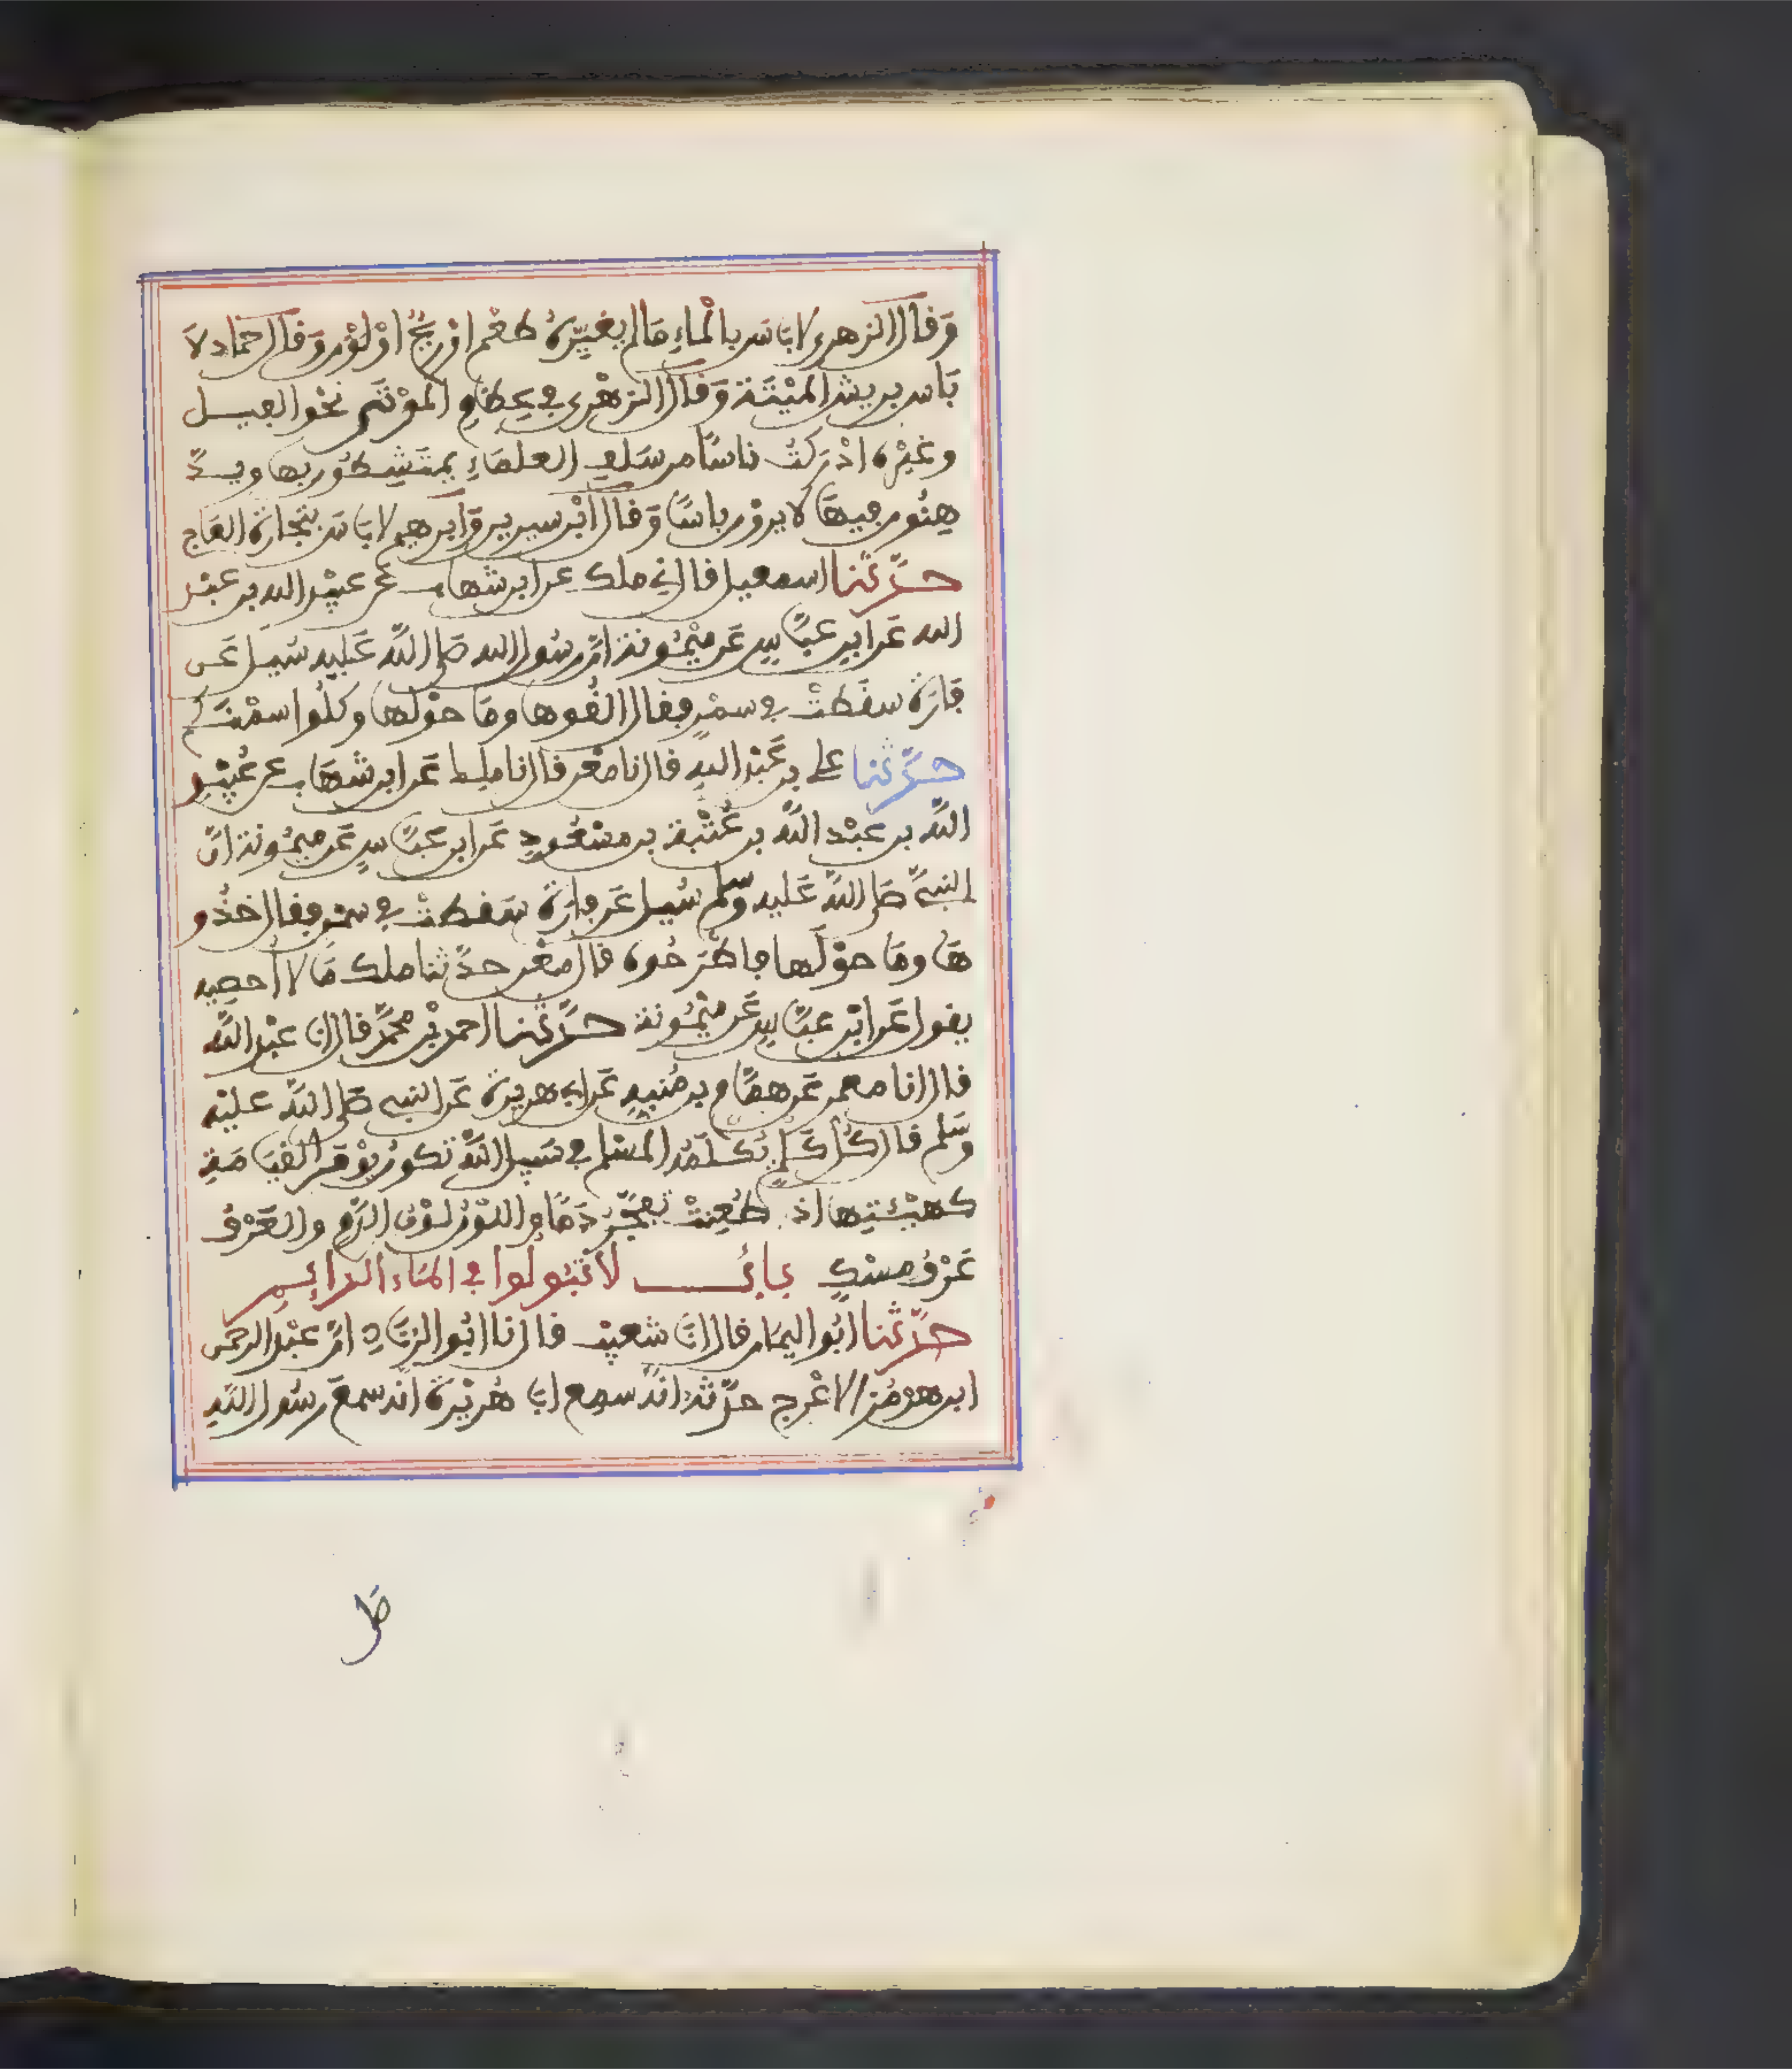 وَقال الزهرى لا بَاسَ بالْماءِ مَا لم يغيِّرْهُ طعْم اوْ ريحٌ اوْ لوْن وَقال حمّاد لَا
بَاس بريش الْمَيْتَة وَقال الزهْرى في عِظامِ الْمَوْتَى نحْو الفيــل
وغيْره ادْركتُ ناسًا من سَلف العلمَاءِ يمتشِطُون بها ويــدَّ
هِنُون فيهَا لا يروْن باسًا وَقال ابْن سيرين وَابرهيم لا بَاسَ بتجَارةِ العَاج
حــدَّثنا اسمعيل قال نى ملك عن ابن شهاب عن عبيْد الله بن عبْد
الله عَن ابن عبَّاسٍ عَن ميْمُونة انّ رسُول الله صَلى اللَّه عَليه سُيِل عَن
فَارَة سقَطتْ في سمْنٍ فقال القُوها ومَا حوْلها وكلُوا سمْنَكم
حــدَّثنا على بن عَبْد اللهِ قال نا معْن قال نا ملك عَن ابن شهَاب عن عُبيْدِ
اللَّه بن عبْد اللَّه بن عُتْبة بن مسْعُودٍ عَن ابن عبَّاسٍ عَن ميمُونة انّ
النبيَّ صَلى اللَّه عَليه وسلم سُيِل عَن فارَة سَقطتْ في سمْن فقال خذُو
هَا ومَا حوْلَها فاطْرَحُوه قال معْن حدَّثنا ملك مَا لا أُحصِيه
يقول عَن ابْن عبَّاسٍ عَن ميْمُونة حــدَّثنا احمد بْن محمَّد قال انا عبْد اللَّه
قال انا معمر عَن همَّامِ بن مُنبهِ عَن ابى هريرة عَن النبى صَلى اللَّه عليْه
وسَلم قال كُل كَلْمٍ يُكْلَمُه المسْلم في سَبيل اللَّه تكون يوْمَ القيَامَة
كهيْئتِها اذ طُعِنتْ تفجَّرُ دَمًا واللوْن لوْن الدَّم والعَرْفُ
عَرْفُ مِسْكٍ بابُــــ لا تبُولوا في المَاء الدايم
حدَّثنا ابُو اليمَان قال انا شعيْب قال نا ابُو الزنَاد انّ عبْد الرحمن
ابن هرمُز الاعْرج حدَّثه انَّه سمع ابَا هُريْرَة انه سمعَ رسُول اللَّهِ
صَلى